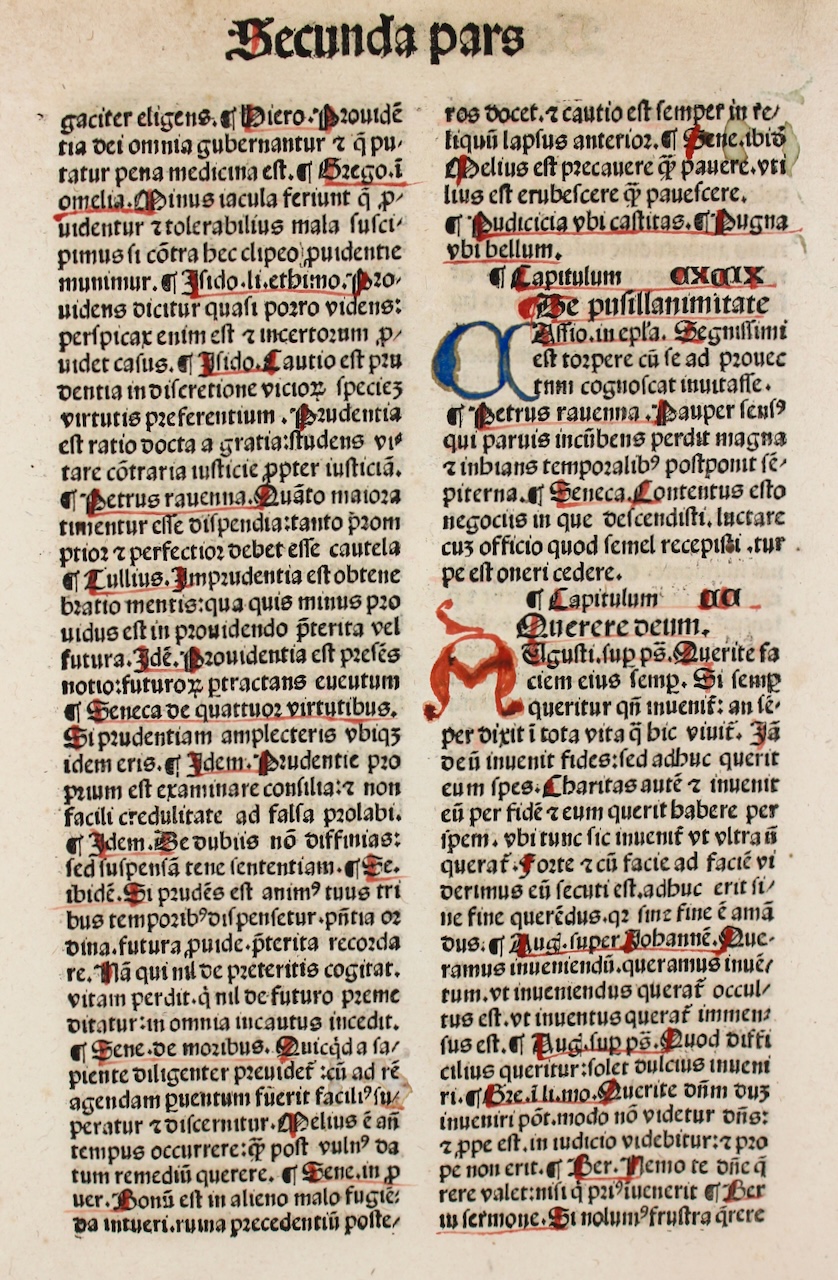 Secunda pars
gaciter eligens.¶ Hiero.Prouidẽ
tia dei omnia gubernantur ⁊ q̃ pu⸗
tatur pena medicina est.¶ Grego.ĩ
omelia.Minus iacula feriunt q̃ ꝓ⸗
uidentur ⁊ tolerabilius mala susci⸗
pimus si cõtra hec clipeo ꝓuidentie
munimur.¶ Isido.li.ethimo.Pro⸗
uidens dicitur quasi porro videns:
perspicax enim est ⁊ incertorum ꝓ⸗
uidet casus.¶ Isido.Cautio est pru
dentia in discretione vicioꝝ speciez
virtutis preferentium .Prudentia
est ratio docta a gratia:studens vi⸗
tare cõtraria iusticie ꝓpter iusticiã.
¶ Petrus rauenna.Quãto maiora
timentur esse dispendia:tanto p̃rom
ptior ⁊ perfectior debet esse cautela
¶ Tullius.Imprudentia est obtene
bratio mentis:qua quis minus pro
uidus est in prouidendo p̃terita vel
futura.Idẽ.Prouidentia est presẽs
notio:futuroꝝ ꝑtractans euentum
¶ Seneca de quattuor virtutibus.
Si prudentiam amplecteris vbiqꝫ
idem eris.¶ Idem.Prudentie pro
prium est examinare consilia:⁊ non
facili credulitate ad falsa prolabi.
¶ Idem.De dubiis nõ diffinias:
sed suspensã tene sententiam.¶ Se.
ibidẽ.Si prudẽs est animꝰ tuus tri
bus temporibꝰ dispensetur.pñtia or
dina.futura ꝓuide.p̃terita recorda
re.Nã qui nil de preteritis cogitat.
vitam perdit.q̇ nil de futuro preme
ditatur:in omnia incautus incedit.
¶ Sene.de moribus. Quicq̇d a sa⸗
piente diligenter preuidet̃ :cũ ad rẽ
agendam ꝓuentum fuerit faciliꝰ su⸗
peratur ⁊ discernitur.Melius ẽ añ
tempus occurrere:q̃ꝫ post vulnꝰ da
tum remediũ querere. ¶ Sene.in ꝓ
uer.Bonũ est in alieno malo fugiẽ⸗
da intueri.ruina precedentiũ poste⸗
ros docet.⁊ cautio est semper in re⸗
liquũ lapsus anterior.¶ Sene.ibidẽ
Melius est precauere q̃ꝫ pauere.vti
lius est erubescere q̃ꝫ pauescere.
¶ Pudicicia vbi castitas.¶ Pugna
vbi bellum.
¶ Capitulum CXCIX
De pusillanimitate
CAssio.in epl̃a. Segnissimi
est torpere cũ se ad prouec
tum cognoscat inuitasse.
¶ Petrus rauenna .Pauper sensꝰ
qui paruis incũbens perdit magna
⁊ inhians temporalibꝰ postponit sẽ⸗
piterna.¶ Seneca.Contentus esto
negociis in que descendisti. luctare
cuꝫ officio quod semel recepisti .tur
pe est oneri cedere.
¶ Capitulum CC
Querere deum.
AUgusti.sup̱ ps̃.Querite fa
ciem eius semp̱. Si semp̱
queritur qñ inuenit̃: an sẽ⸗
per dixit ĩ tota vita q̃ hic viuit̃. Iã
deũ inuenit fides:sed adhuc querit
eum spes.Charitas autẽ ⁊ inuenit
eũ per fidẽ ⁊ eum querit habere per
spem. vbi tunc sic inuenit̃ vt vltra ñ
querat̃.Forte ⁊ cũ facie ad faciẽ vi
derimus eũ secuti est.adhuc erit si⸗
ne fine querẽdus.qꝛ sine fine ẽ amã
dus.¶ Aug.super Iohannẽ.Que⸗
ramus inueniendũ.queramus inuẽ⸗
tum.vt inueniendus querat̃ occul⸗
tus est.vt inuentus querat̃ immen⸗
sus est.¶ Aug.sup̱ ps̃.Quod diffi
cilius queritur:solet dulcius inueni
ri.¶ Gre.ĩ li.mo.Querite dñm duꝫ
inueniri põt.modo nõ videtur dñs:
⁊ ꝓpe est.in iudicio videbitur:⁊ pro
pe non erit.¶ Ber.Nemo te dñe q̃
rere valet:nisi q̇ priꝰ inuenerit ¶ Ber
in sermone.Si nolumꝰ frustra q̃rere